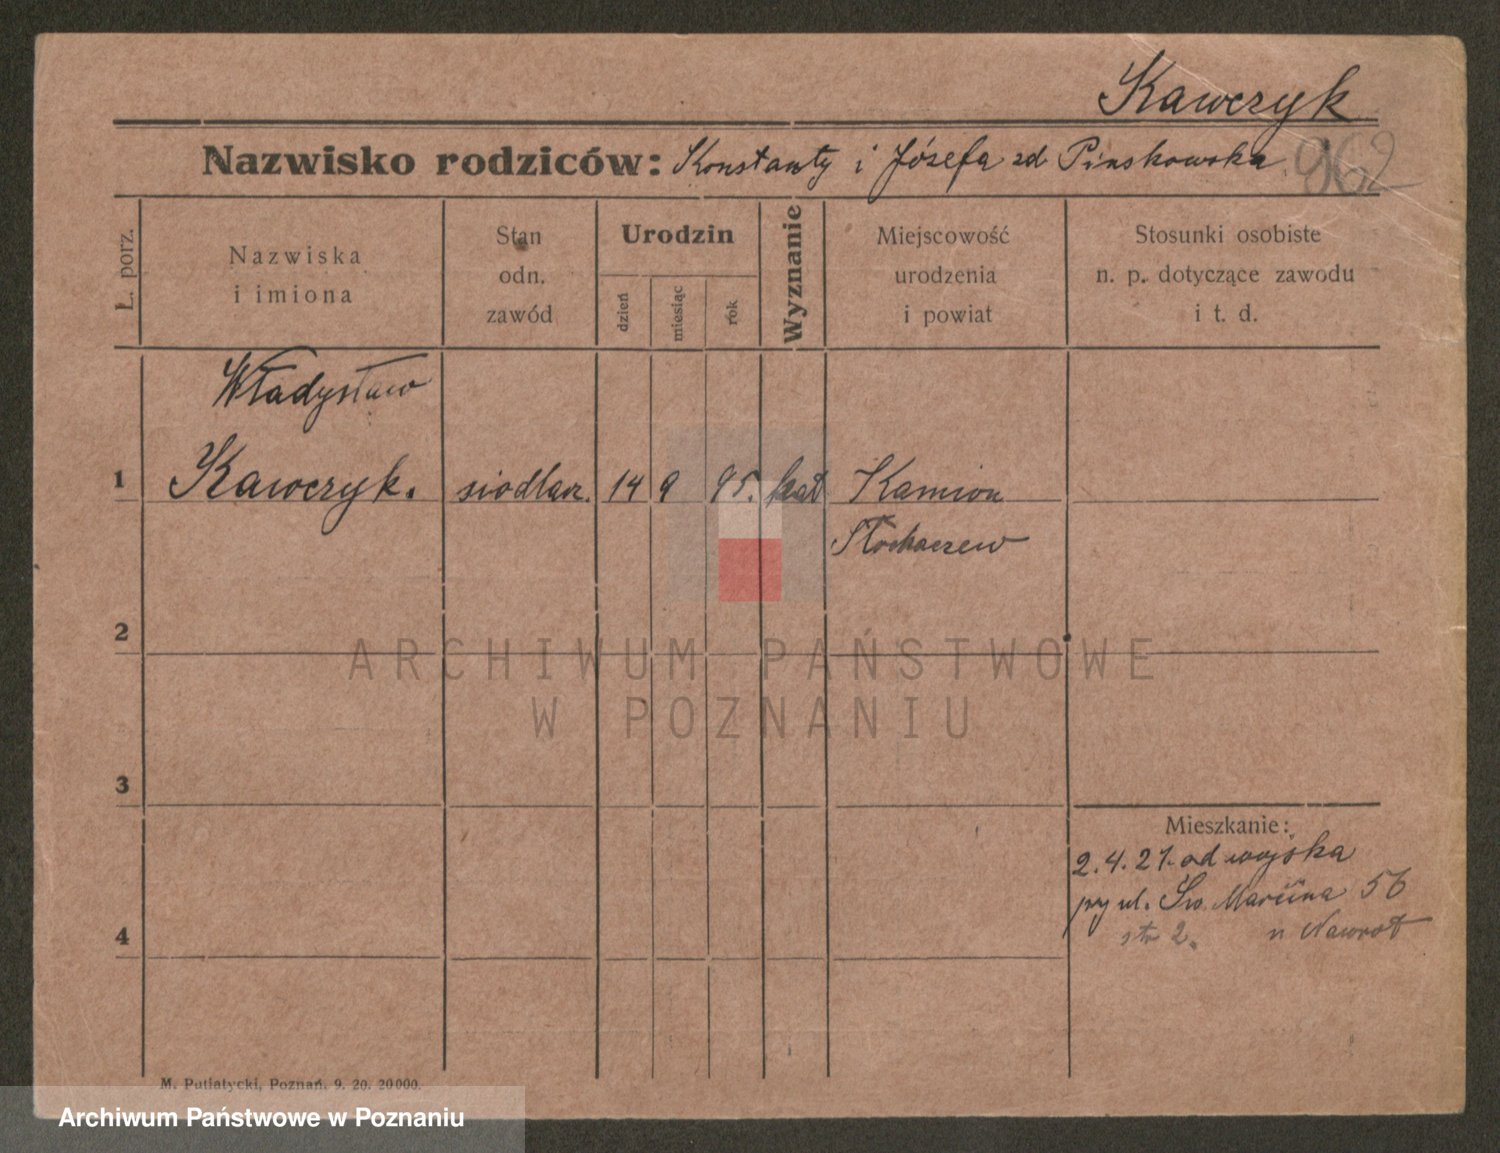 Kawczyk
Nazwisko rodziców: Konstanty i Józefa zd Pinskowska
962
Ł. porz.
Nazwiska
i imiona
Stan
odn.
zawód
Urodzin
dzień
miesiąc
rok
Wyznanie
Miejscowość
urodzenia
i powiat
Stosunki osobiste
n. p. dotyczące zawodu
i t. d.
Władysław
1 Kawczyk. siodlarz. 14 9 95. kat Kamion
Stochaczew
2
ARCHIWUM PAŃSTWOWE
W POZNANIU
3
Mieszkanie:
2.4.21. od wojska
py ul. Św. Marcina 56
4 str 2. n Nawrot
M. Putiatycki, Poznań. 9. 20. 20000.
Archiwum Państwowe w Poznaniu